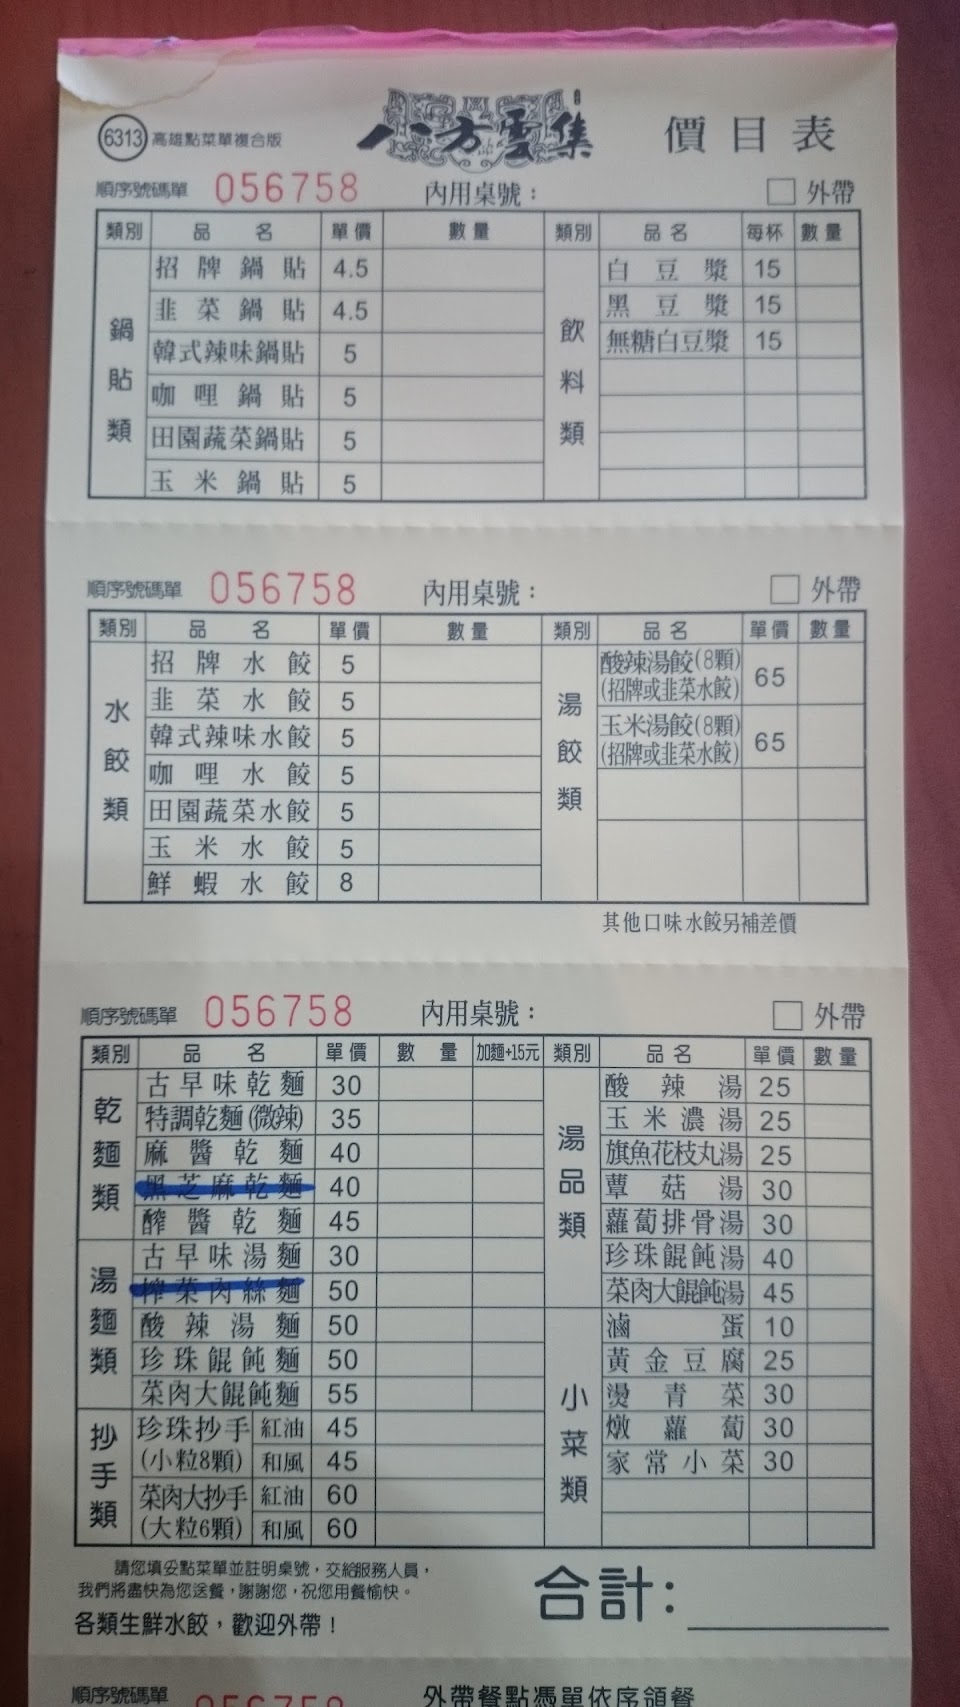 6313 高雄點菜單複合版 八方雲集 價目表
順序號碼單 056758 內用桌號： □ 外帶
類別 品名 單價 數量 類別 品名 每杯 數量
鍋貼類
招牌鍋貼 4.5
韭菜鍋貼 4.5
韓式辣味鍋貼 5
咖哩鍋貼 5
田園蔬菜鍋貼 5
玉米鍋貼 5
飲料類
白豆漿 15
黑豆漿 15
無糖白豆漿 15
順序號碼單 056758 內用桌號： □ 外帶
類別 品名 單價 數量 類別 品名 單價 數量
水餃類
招牌水餃 5
韭菜水餃 5
韓式辣味水餃 5
咖哩水餃 5
田園蔬菜水餃 5
玉米水餃 5
鮮蝦水餃 8
湯餃類
酸辣湯餃(8顆)
(招牌或韭菜水餃) 65
玉米湯餃(8顆)
(招牌或韭菜水餃) 65
其他口味水餃另補差價
順序號碼單 056758 內用桌號： □ 外帶
類別 品名 單價 數量 加麵+15元 類別 品名 單價 數量
乾麵類
古早味乾麵 30
特調乾麵(微辣) 35
麻醬乾麵 40
黑芝麻乾麵 40
醡醬乾麵 45
湯麵類
古早味湯麵 30
榨菜肉絲麵 50
酸辣湯麵 50
珍珠餛飩麵 50
菜肉大餛飩麵 55
抄手類
珍珠抄手 紅油 45
(小粒8顆) 和風 45
菜肉大抄手 紅油 60
(大粒6顆) 和風 60
湯品類
酸辣湯 25
玉米濃湯 25
旗魚花枝丸湯 25
蕈菇湯 30
蘿蔔排骨湯 30
珍珠餛飩湯 40
菜肉大餛飩湯 45
小菜類
滷蛋 10
黃金豆腐 25
燙青菜 30
燉蘿蔔 30
家常小菜 30
請您填妥點菜單並註明桌號，交給服務人員，
我們將盡快為您送餐，謝謝您，祝您用餐愉快。
各類生鮮水餃，歡迎外帶！
合計：
順序號碼單 056758 外帶餐點憑單依序領餐